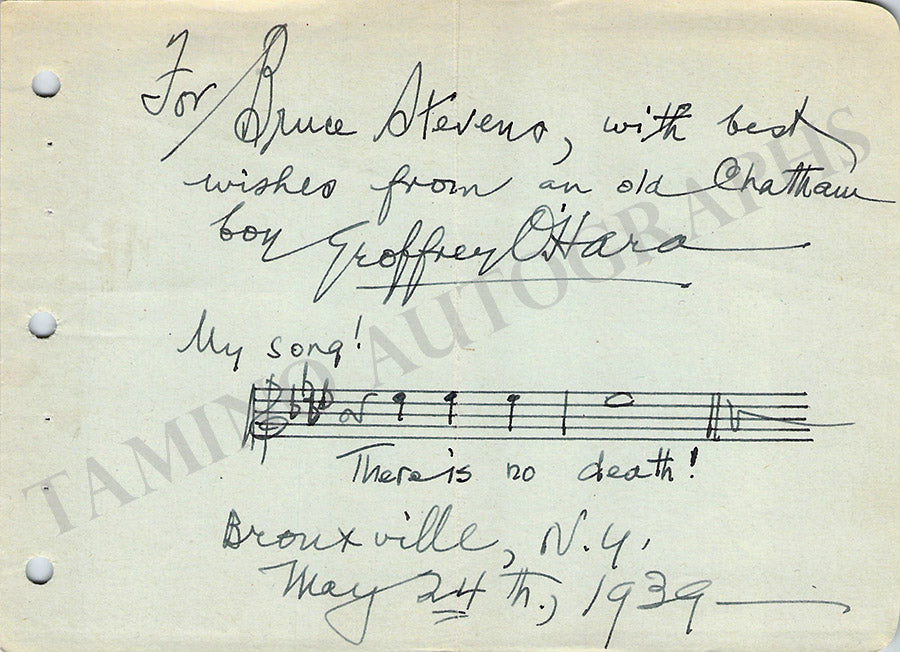 For Bruce Stevens, with best
wishes from an old Chatham
boy Geoffrey O'Hara
My song!
There is no death!
Bronxville, N.Y.
May 24th, 1939
TAMINO AUTOGRAPHS